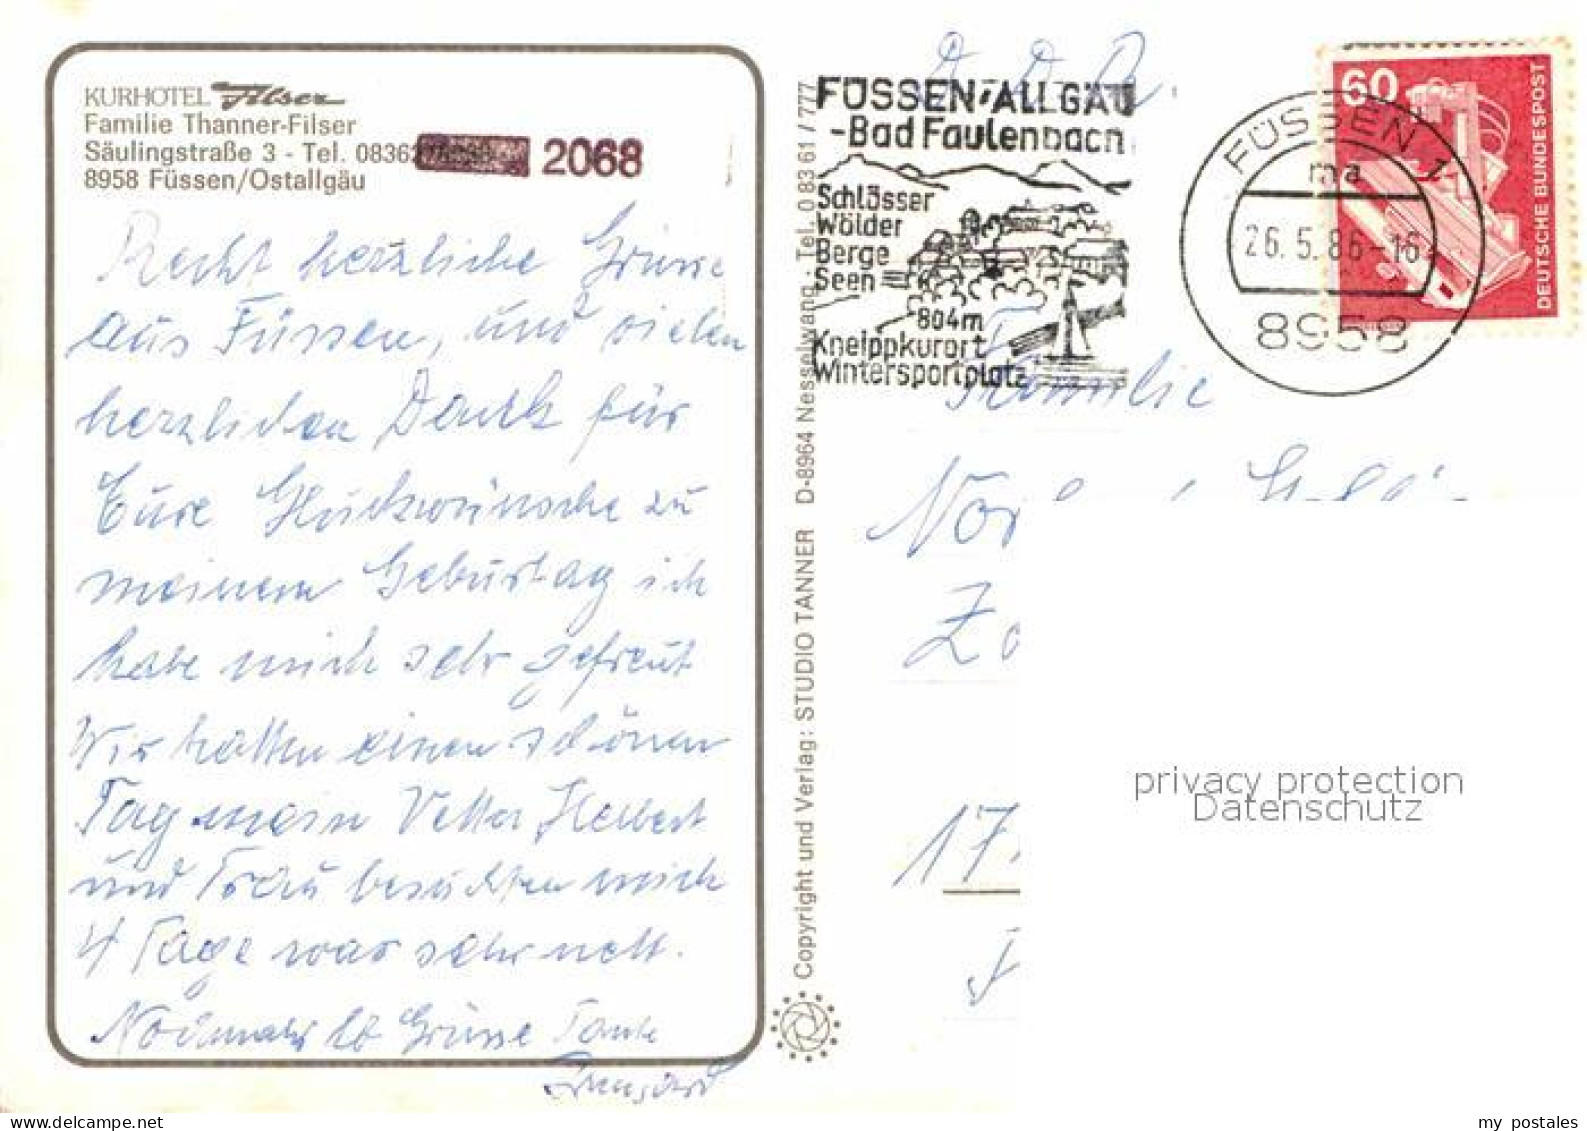 KURHOTEL Filser
Familie Thanner-Filser
Säulingstraße 3 - Tel. 08362 2068
8958 Füssen/Ostallgäu
Recht herzliche Grüsse
aus Füssen, und vielen
herzlichen Dank für
Eure Glückwünsche zu
meinem Geburtag ich
habe mich sehr gefreut
Wir hatten einen schönen
Tag mein Vetter Herbert
und Frau besuchten mich
4 Tage war sehr nett.
Nochmals hb Grüsse Tante
Irmgard
Copyright und Verlag: STUDIO TANNER D-8964 Nesselwang · Tel. 0 83 61 / 777
DDR
FÜSSEN/ALLGÄU
-Bad Faulenbach
Schlösser
Wälder
Berge
Seen
804m
Kneippkurort
Wintersportplatz
FÜSSEN 1
ma
26.5.86-16
8958
60
DEUTSCHE BUNDESPOST
Familie
17
privacy protection
Datenschutz
my postales